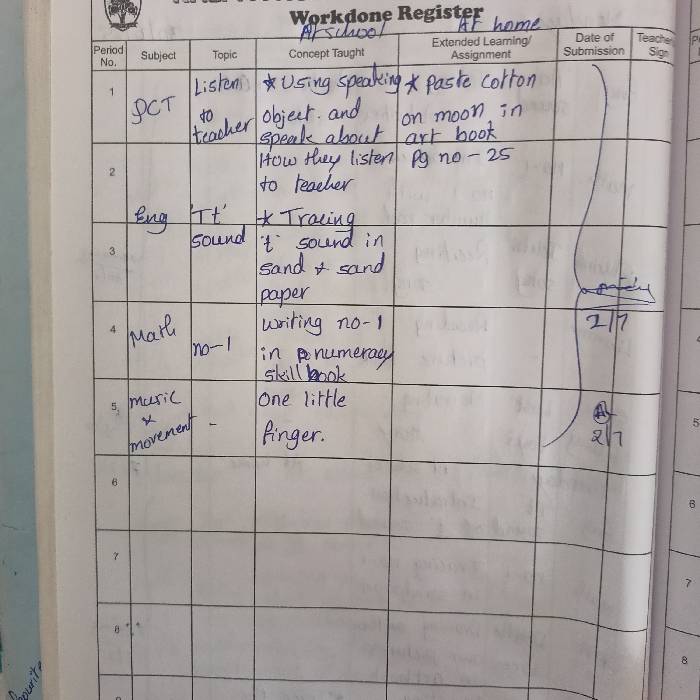 Workdone Register
At school
At home
Period No.
Subject
Topic
Concept Taught
Extended Learning/ Assignment
Date of Submission
Teache
Sign
1
PCT
Listen
to
teacher
* Using speaking
object. and
speak about
How they listen
to teacher
* Paste cotton
on moon in
art book
Pg no - 25
2
Eng
'Tt'
sound
* Tracing
't' sound in
sand & sand
paper
3
4
Math
no-1
Writing no-1
in numeracy
skill book
2/7
5
music
&
movement
-
One little
finger.
2/7
6
7
8
5
6
7
8